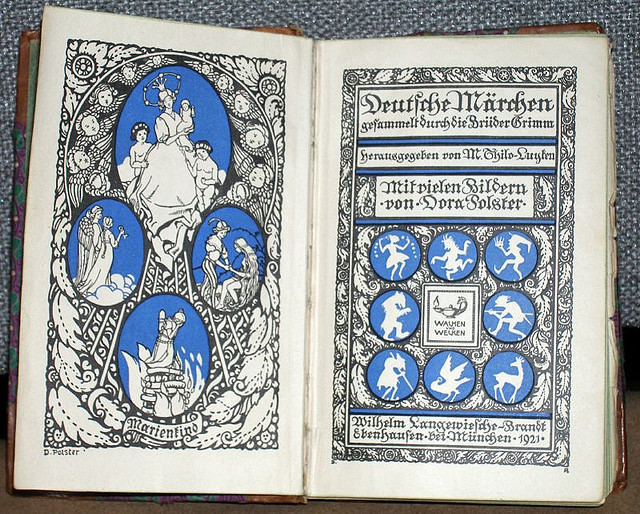 Marienkind
D. Polster
Deutsche Märchen
gesammelt durch die Brüder Grimm
Herausgegeben von M. Thilo-Luyken
Mit vielen Bildern
· von · Dora Polster ·
WACHEN
UND
WECKEN
Wilhelm Langewiesche-Brandt
Ebenhausen · bei · München · 1921 ·